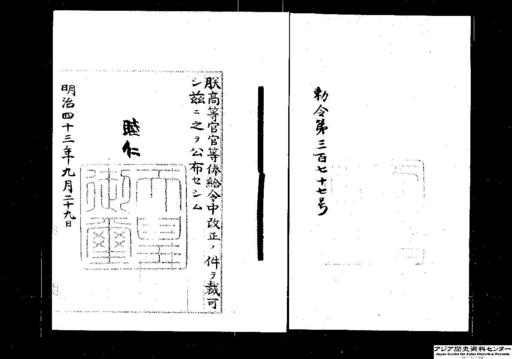 勅令第三百七十七号
朕高等官官等俸給令中改正ノ件ヲ裁可
シ茲ニ之ヲ公布セシム
睦仁
天皇
御璽
明治四十三年九月二十九日
アジア歴史資料センター
Japan Center for Asian Historical Records